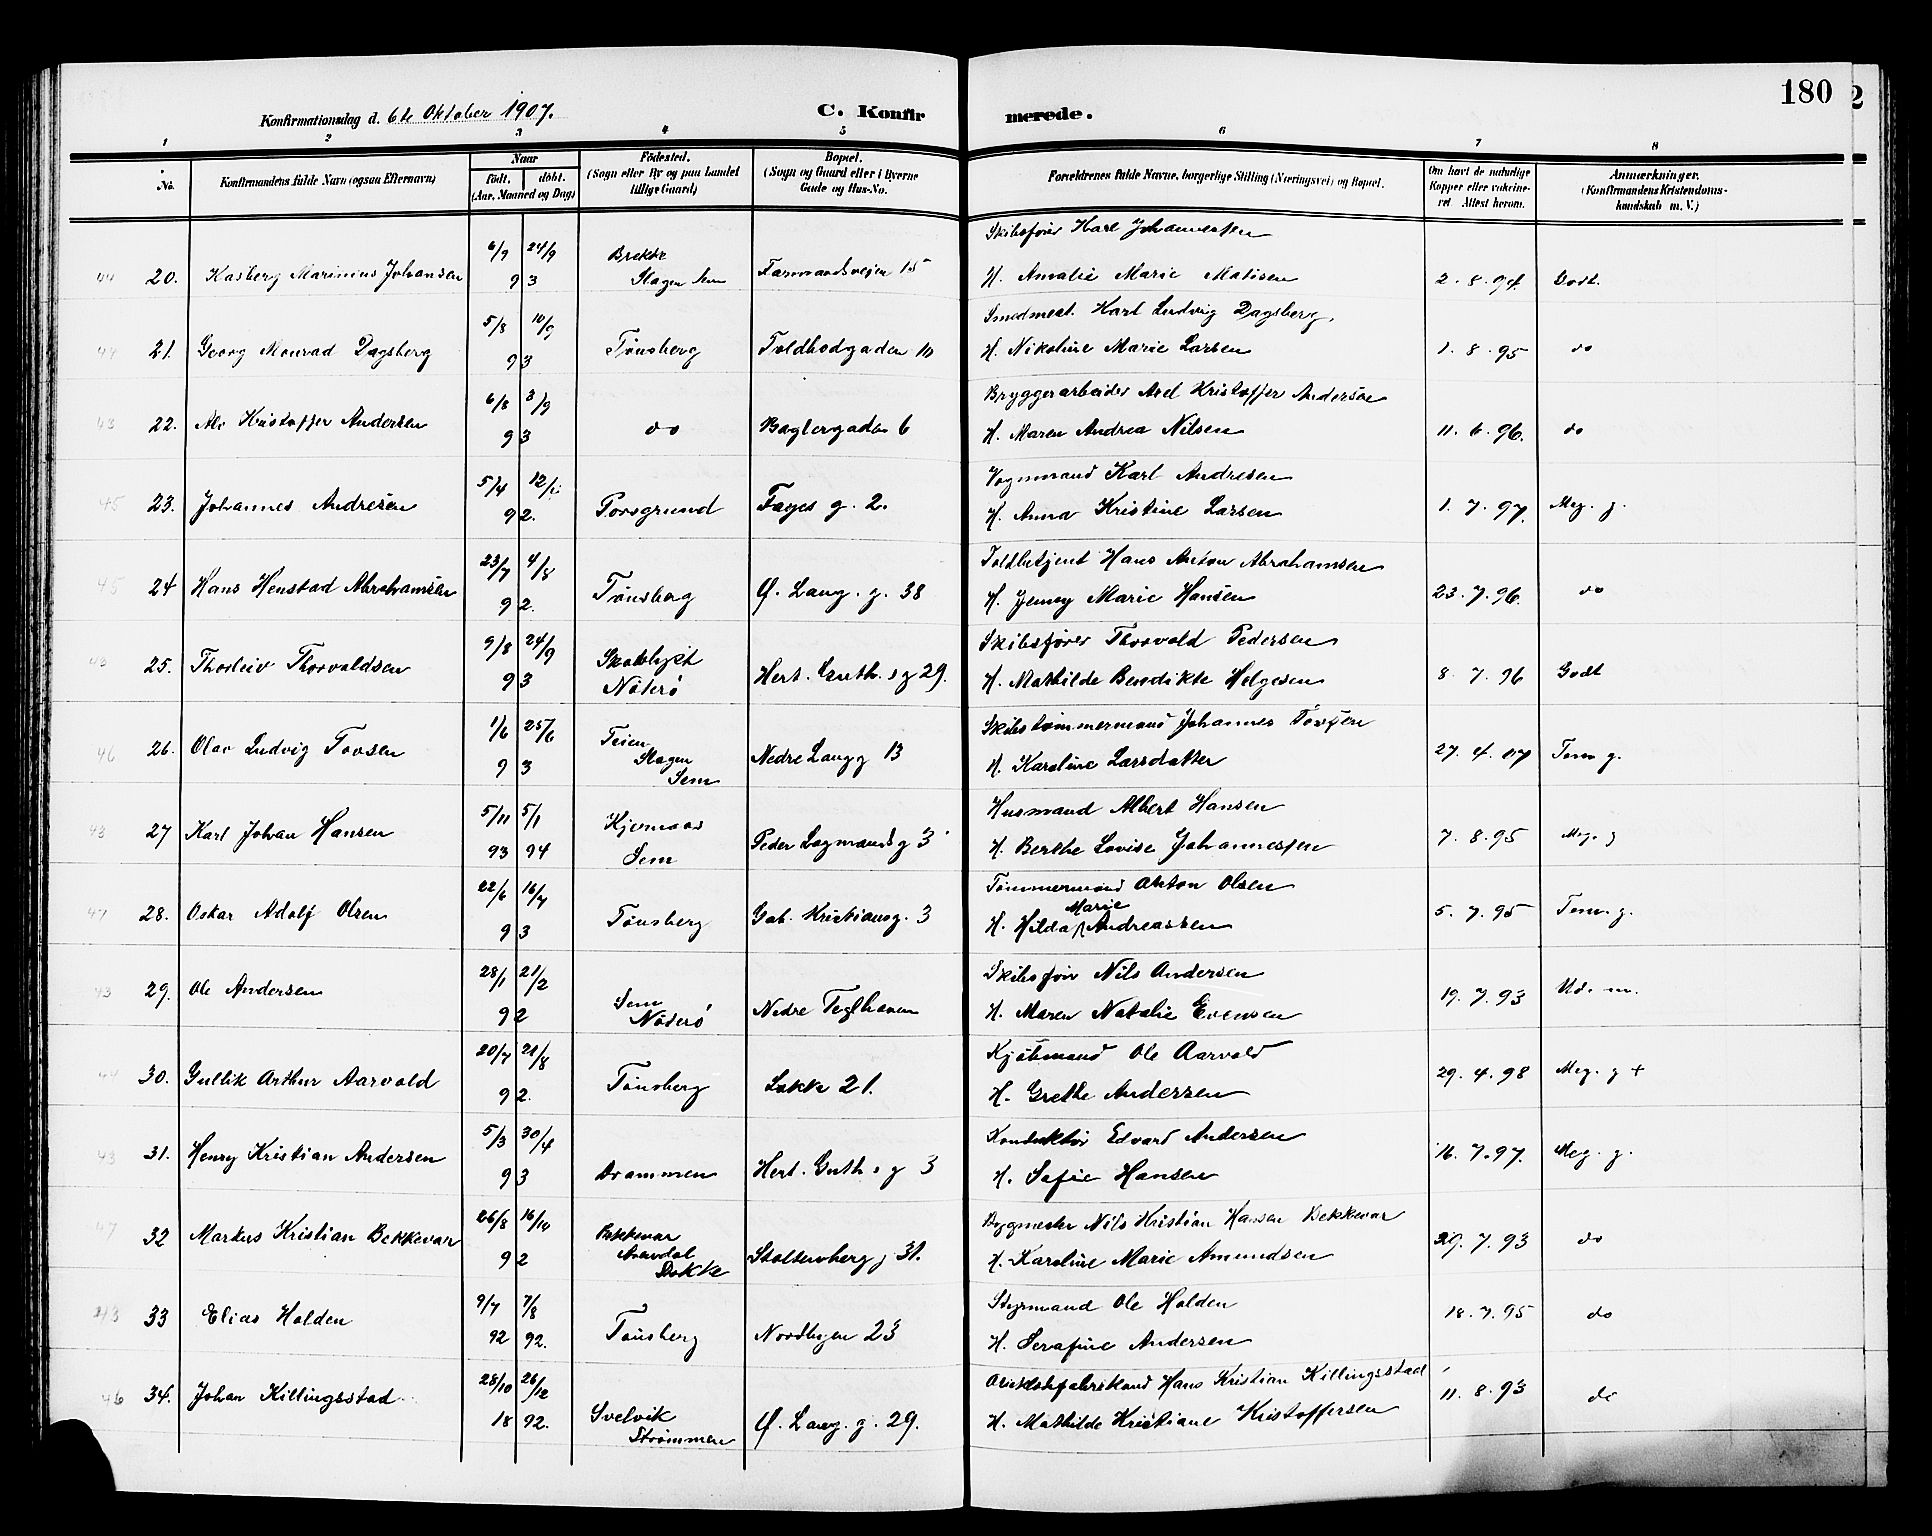 180
Konfirmationsdag d. 6te Oktober 1907.
C. Konfirmerede.
1 2 3 4 5 6 7 8
No.
Konfirmandens fulde Navn (ogsaa Efternavn)
Naar
født. døbt.
(Aar, Maaned og Dag)
Fødested.
(Sogn eller By og paa Landet
tillige Gaard)
Bopæl.
(Sogn og Gaard eller i Byerne
Gade og Hus-No.
Forældrenes fulde Navne, borgerlige Stilling (Næringsvei) og Bopæl.
Om havt de naturlige
Kopper eller vakcine-
ret Attest herom.
Anmærkninger.
(Konfirmandens Kristendoms-
kundskab m. V.)
44 20. Kasberg Marinius Johansen 6/9 24/9 93 Brekke Slagen Sem Farmandsveien 15 Skibsfører Karl Johannessen
H. Amalie Marie Matisen 2.8.94 Godt.
44 21. Georg Monrad Dagsberg 5/8 10/9 93 Tønsberg Toldbodgaden 10 Smedmest. Karl Ludvig Dagsberg,
H. Nikoline Marie Larsen 1.8.95 do
43 22. Kristoffer Andersen 6/8 3/9 93 do Baglergaden 6 Bryggerarbeider Kristoffer Andersen
H. Maren Andrea Nilsen 11.6.96. do
45 23. Johannes Andresen 5/4 92. Porsgrund Fayes g. 2. Vognmand Karl Andresen
H. Anna Kristine Larsen 1.7.97. Meg. g.
45 24 Hans Henstad Abrahamsen 23/7 4/8 92. Tønsberg Ø. Lang. g. 38 Toldbetjent Hans Anton Abrahamsen
H. Jenny Marie Hansen 23.7.96. do
43 25. Thorleiv Thorvaldsen 9/8 24/9 93 Nøterø Hert. Guth. s g 29. Skibsfører Thorvald Pedersen
H. Mathilde Bendikte Helgesen 8.7.96 Godt
46 26. Olav Ludvig Tovsen 1/6 25/6 93 Teien Slagen Sem Nedre Langg 13 Skibstømmermand Johannes Tovsen
H. Karoline Larsdatter 27.4.07 Tem g.
43 27 Karl Johan Hansen 5/11 93 5/1 94 Kjernaas Sem Peder Lagmandsg 3 Husmand Albert Hansen
H. Berthe Lovise Johannessen 7.8.95 Meg. g
47 28. Oskar Adolf Olsen 22/6 16/7 93 Tønsberg Gab. Kristiansg. 3 Tømmermand Anton Olsen
H. Hilda Marie Andreassen 5.7.95 Tem. g.
43 29. Ole Andersen 28/1 21/2 92 Sem Nøterø Nedre Teglhaven Skibsfører Nils Andersen
H. Maren Natalie Evensen 19.7.93 Ud. m.
44 30. Gullik Arthur Aarvold 20/7 21/8 92. Tønsberg Løkke 21. Kjøbmand Ole Aarvold
H. Grethe Andersen 29.4.98 Meg. g +
43 31. Henry Kristian Andersen 5/3 30/4 93 Drammen Hert. Guth s g 3 Konduktør Edvard Andersen
H. Sofie Hansen 16.7.97. Meg. g.
47 32 Markus Kristian Bekkevar 26/8 16/10 92 Bekkevar Stoltenberg g 31. Bygmester Nils Kristian Hansen Bekkevar
H. Karoline Marie Amundsen 29.7.93 do
43 33 Elias Holden 9/7 92 7/8 92. Tønsberg Nordbyen 23 Styrmand Ole Holden
H. Serafine Andersen 18.7.95 do
46 34. Johan Killingsstad 28/10 18 26/12 92. Svelvik Strømmen Ø. Lang. g. 29. Hans Kristian Killingsstad
H. Mathilde Kristiane Kristoffersen 11.8.93 do